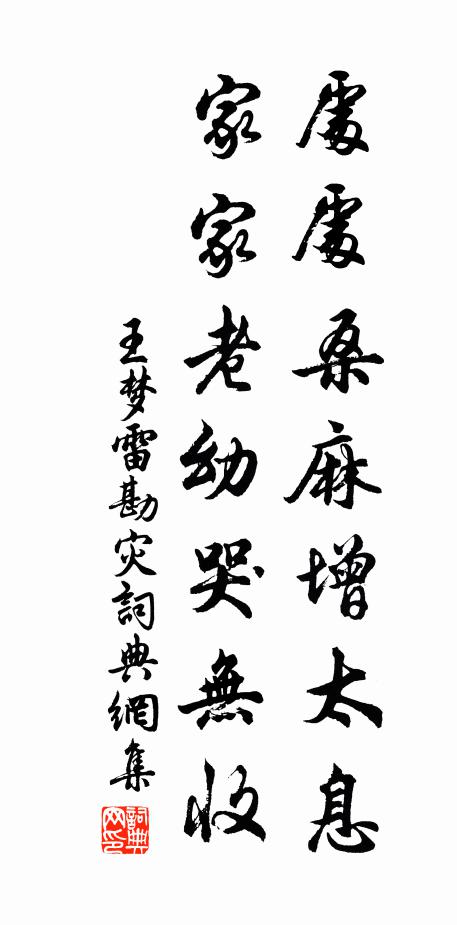 處處桑麻增太息
家家老幼哭無收
王梦雷勘灾詞典網集
詞典网印